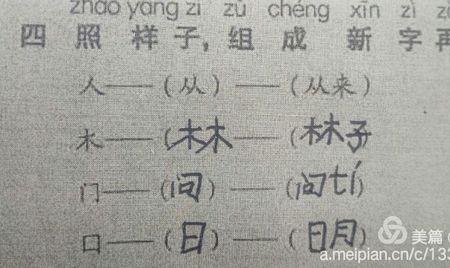 zhào yàng zi zǔ chéng xīn zì
四 照 样 子，组 成 新 字 再
人——（从）——（从来）
木——（林）——（林子）
门——（问）——（问tí）
口——（日）——（日月）
美篇
a.meipian.cn/c/133